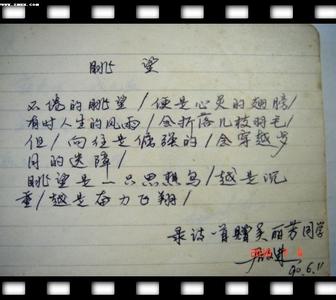 眺望
不倦的眺望/便是心灵的翅膀
有时人生的风雨/会折落几枝羽毛
但/向往是倔强的/会穿越岁
月的迷障/
眺望是一只思想鸟/越是沉
重/越是奋力飞翔/
录诗一首赠吴丽芳同学
90.6.11